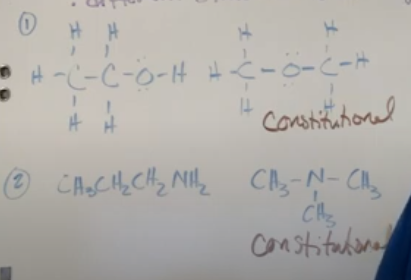 ①
H H H H
H-C-C-Ö-H H-C-O-C-H
H H H H
Constitutional
② CH₃CH₂CH₂NH₂ CH₃-N-CH₃
CH₃
constitutional